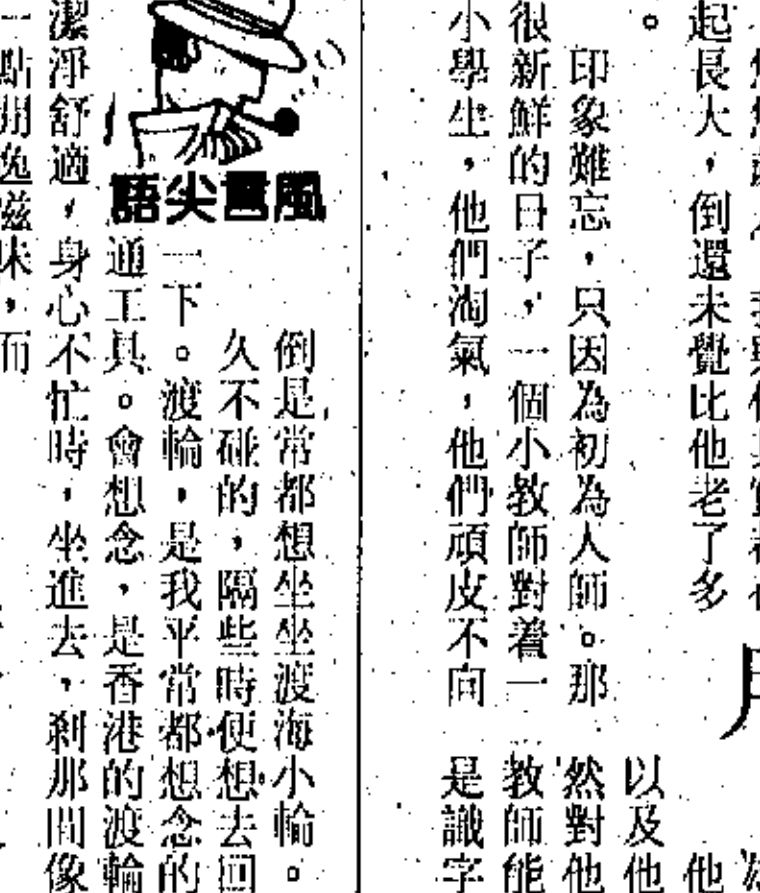 起長大，倒還未覺比他老了多
。
印象難忘，只因為初為人師。那
很新鮮的日子，一個小教師對着一
小學生，他們淘氣，他們頑皮不向
以及他
然對他
教師能
是識字
風言尖語
倒是常都想坐坐渡海小輪。
久不碰的，隔些時便想去回
一下。渡輪，是我平常都想念的
通工具。會想念，是香港的渡輪
潔淨舒適，身心不忙時，坐進去，剎那間像
一點閒逸滋味，而